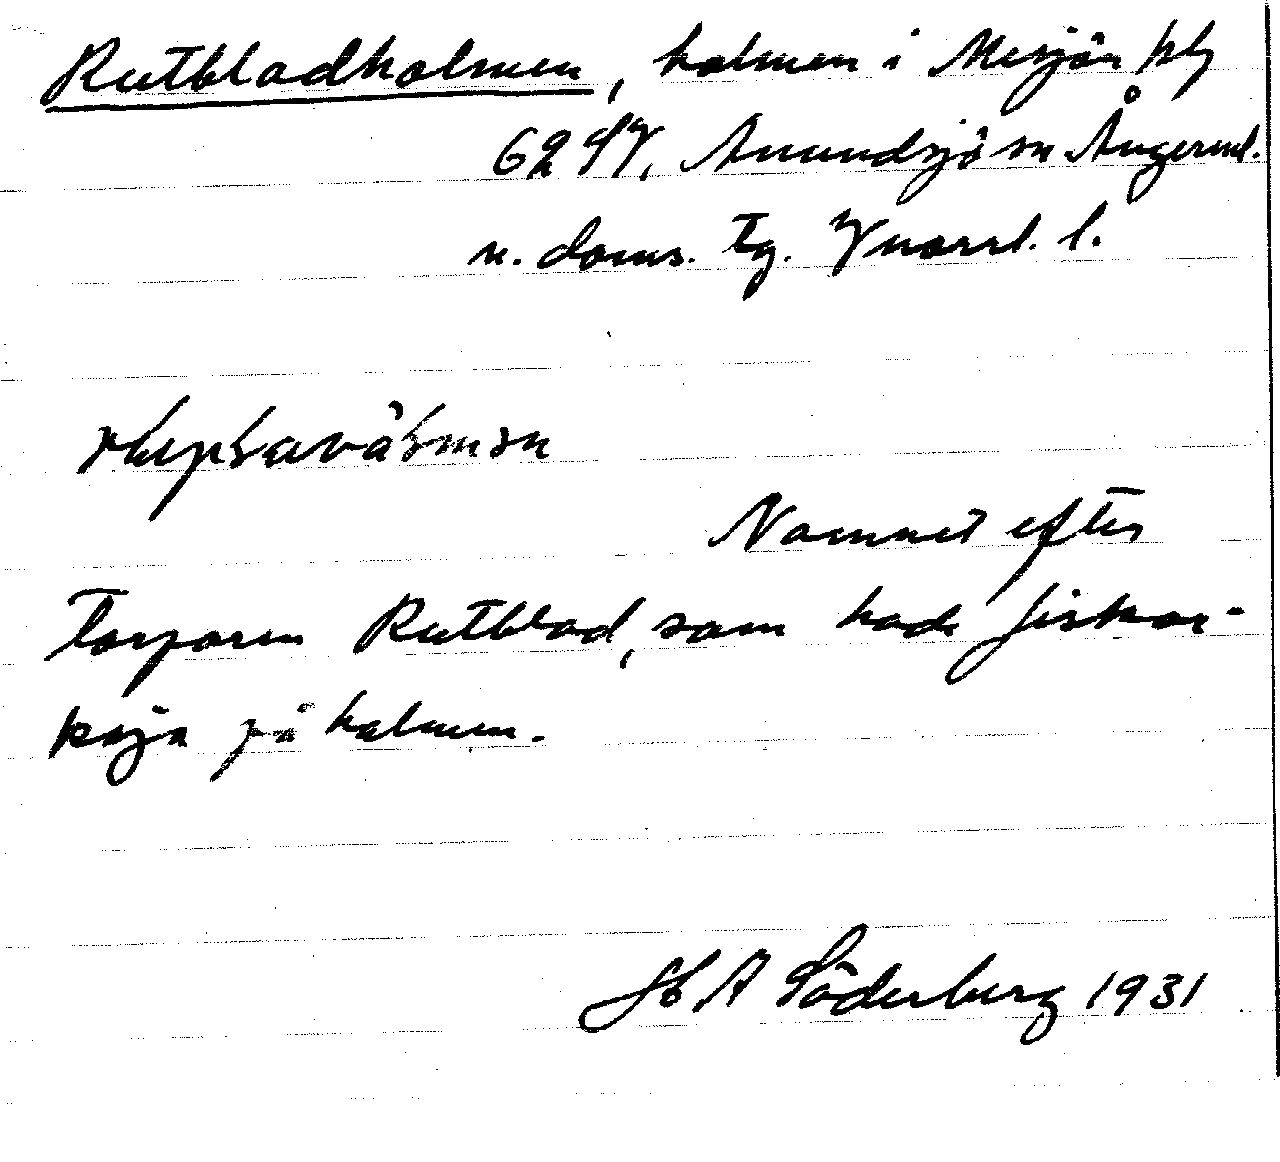 Rutbladholmen, holmen i Mesjön kbl
62 SV, Anundsjö sn Ångerml.
n. doms. tg. Vnorrl. l.
Namnet efter
torparen Rutblad, som hade fiskar-
koja på holmen.
H A Söderberg 1931